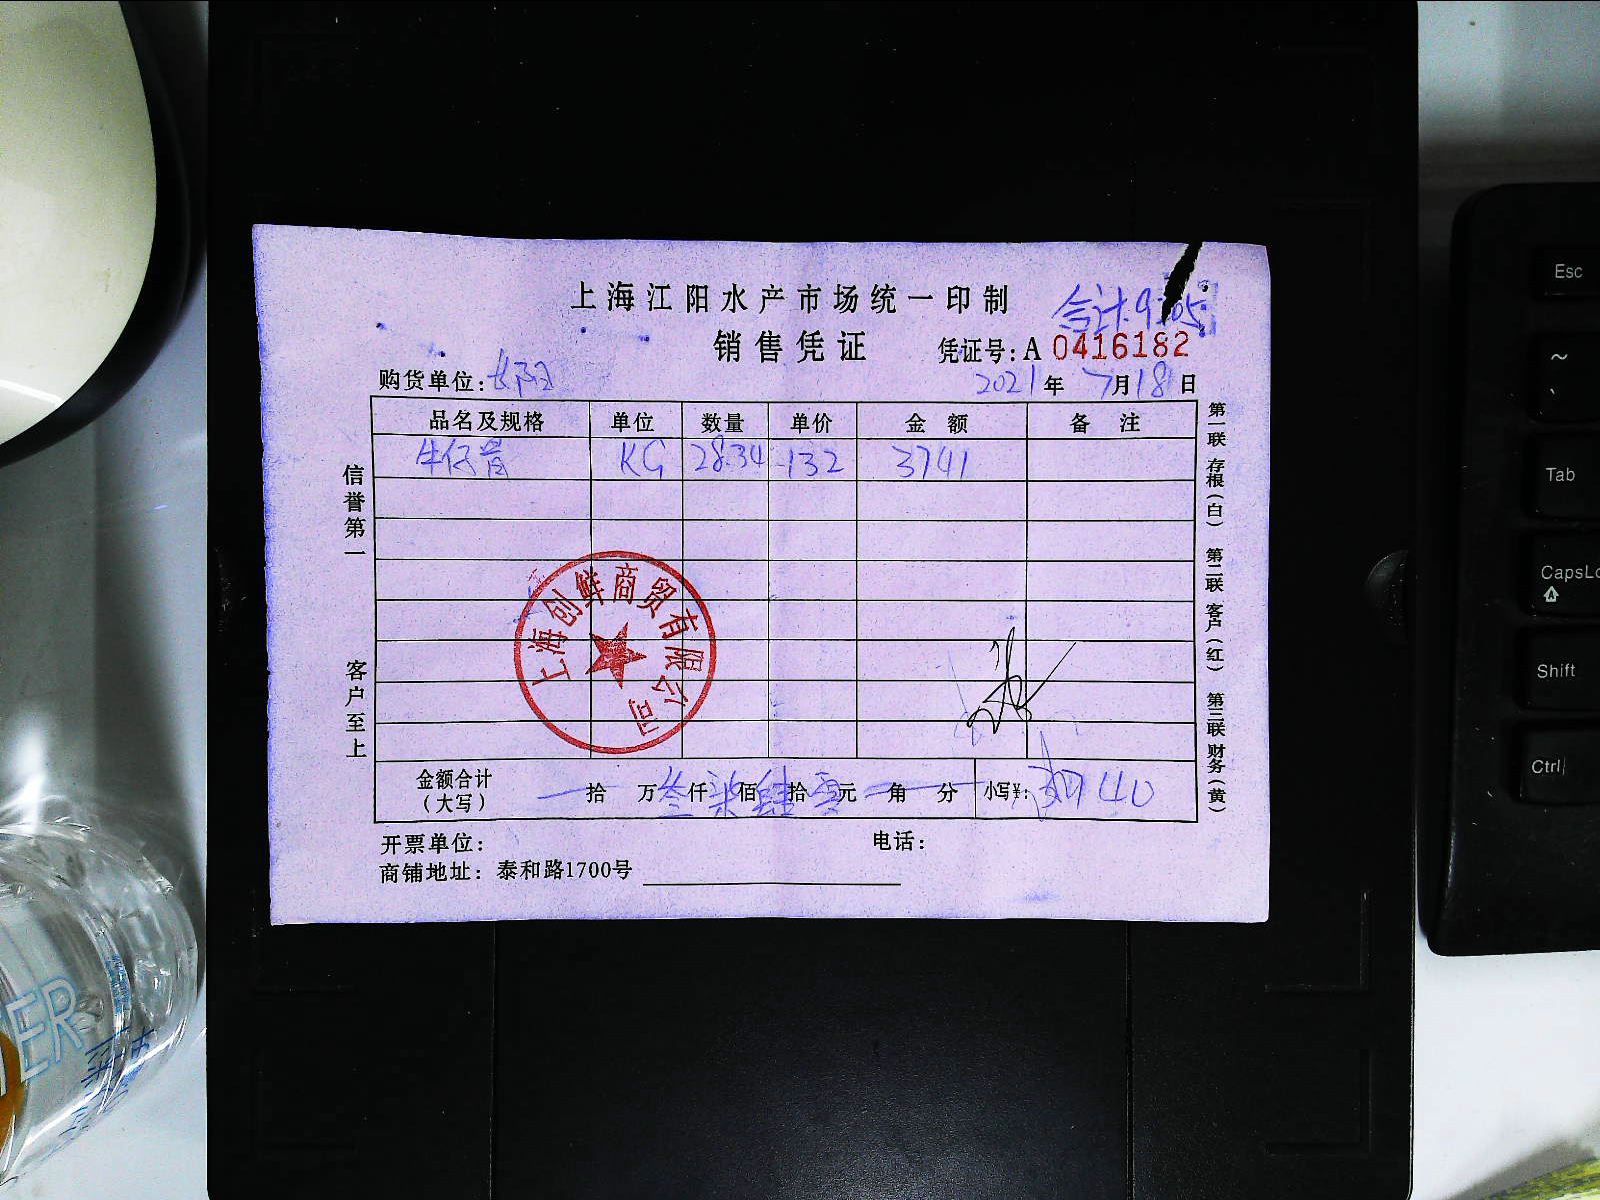 上海江阳水产市场统一印制
合计:9305
销售凭证
凭证号:A 0416182
购货单位:长阳
2021年7月18日
品名及规格 单位 数量 单价 金额 备注
牛仔骨 KG 28.34 132 3741
信誉第一
客户至上
第一联 存根(白) 第二联 客户(红) 第三联 财务(黄)
上海创鲜商贸有限公司
金额合计(大写) 拾 万叁仟柒佰肆拾零元 角 分 小写¥:3740
开票单位:
电话:
商铺地址:泰和路1700号
Esc
~
`
Tab
CapsLo
Shift
Ctrl
TER